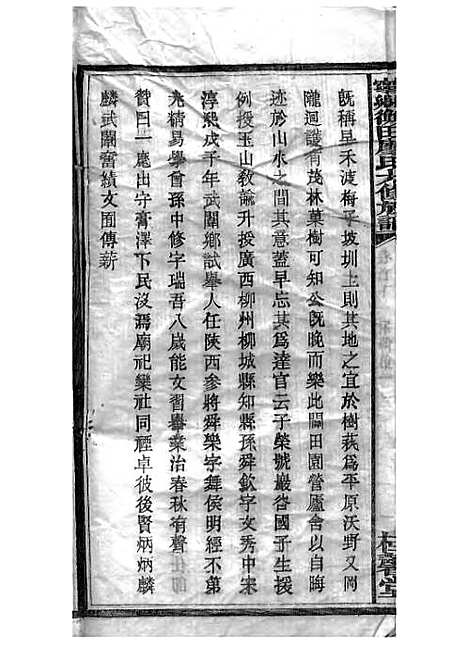 既稱旱禾渡梅子坡圳上則其地之宜於樹萟爲平原沃野又岡
隴迴護有茂林菓樹可知公旣晚而樂此闢田園營廬舍以自晦
迹於山水之間其意蓋早忘其爲達官云子榮號巖峇國子生援
例授玉山敎諭升授廣西柳州柳城縣知縣孫舜欽字文秀中宋
淳熙戊子年武闈鄉試舉人任陝西參將舜樂字舞侯明經不第
尤精易學曾孫中修字瑞吾八歲能文習舉業治春秋有聲
贊曰一麾出守膏澤下民沒焉廟祀欒社同禋卓彼後賢炳炳麟
麟武闈奮績文囿傳薪
桂馨堂